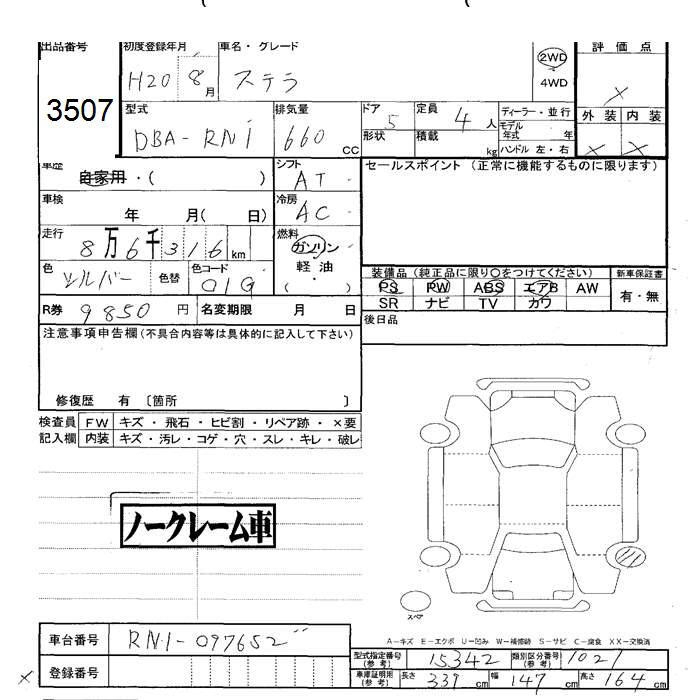 出品番号 初度登録年月 車名・グレード 2WD 評価点
H20 8月 ステラ 4WD ×
3507 型式 排気量 ドア 定員 ディーラー・並行 外装 内装
DBA-RN1 660 cc 5 4人 モデル年式 年
形状 積載 kg ハンドル 左・右 × ×
車歴 自家用・( ) シフト AT セールスポイント (正常に機能するものに限ります)
車検 年 月( 日) 冷房 AC
走行 8万6千316km 燃料 ガソリン
軽油
( ・ )
色 シルバー 色替 色コード 01G 装備品(純正品に限り○をつけてください) 新車保証書
PS PW ABS エアB AW 有・無
SR ナビ TV カワ
R券 9850円 名変期限 月 日 後日品
注意事項申告欄(不具合内容等は具体的に記入して下さい)
修復歴 有 〔箇所 〕
検査員 FW キズ・飛石・ヒビ割・リペア跡・×要
記入欄 内装 キズ・汚レ・コゲ・穴・スレ・キレ・破レ
ノークレーム車
スペア
A-キズ E-エクボ U-凹み W-補修跡 S-サビ C-腐食 XX-交換済
車台番号 RN1-097652
型式指定番号(参考) 15342 類別区分番号(参考) 1021
× 登録番号 車庫証明用(参考) 長さ 339cm 幅 147cm 高さ 164cm